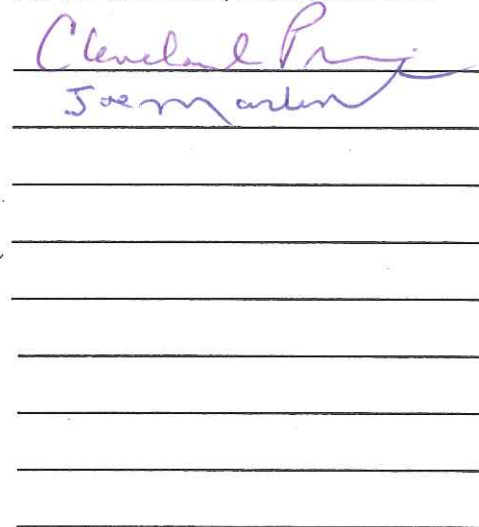 Cleveland
Joe Martin